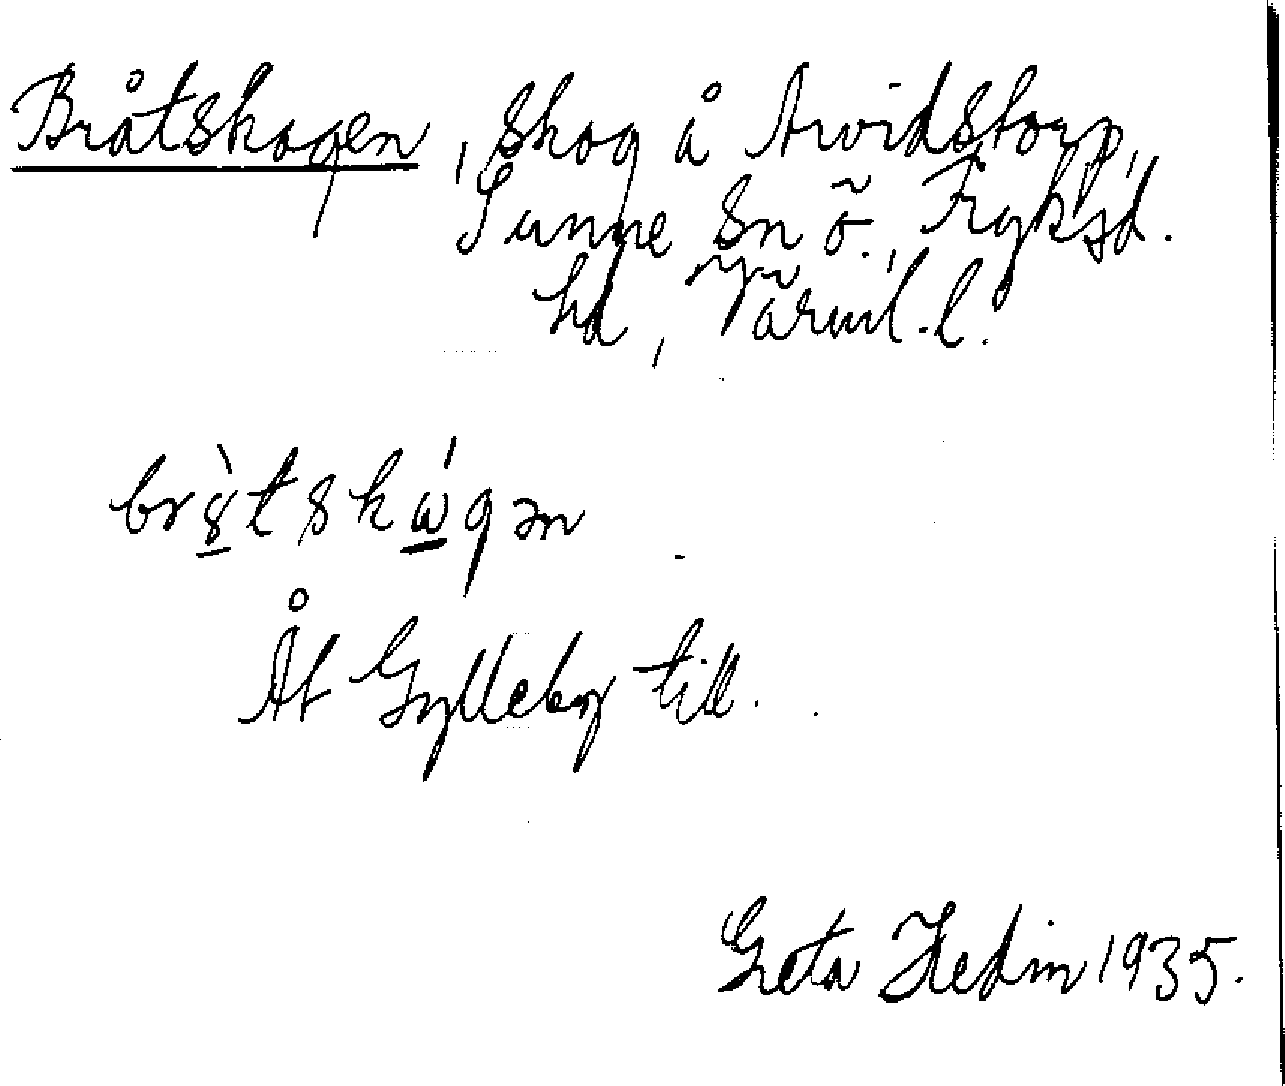 Bråtskogen, skog å Arvidstorp,
Sunne sn ö., Fryksd.
hd, Värml. l.
br8̀tskώgən
Åt Gylleby till.
Greta Hedin 1935.